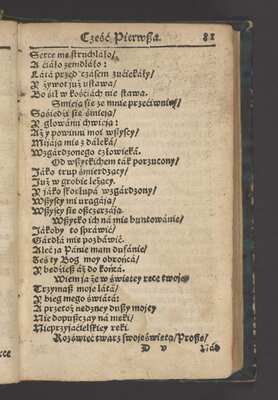 Część Pierwßa. 81
Serce me struchláło/
A ćiáło zemdláło:
Látá przed czásem zućiekáły/
Y żywot już ustawa/
Bo śił w kośćiách nie stawa.
Smieją śię ze mnie przećiwnicy/
Sąśiedźi śię śmieją/
Y głowámi chwieją:
Aż y powinni moi wßyscy/
Mijáją mię z dáleká/
Wzgárdzonego człowieká.
Od wßystkich ták porzucony/
Jáko trup śmierdzący/
Już w grobie leżący.
Y jáko skorupá wzgárdzony/
Wßyscy mi urągáją/
Wßyscy śię oßczerzáją.
Wßystko ich ná mię buntowánie/
Jákoby to spráwić/
Gárdłá mię pozbáwić.
Ale ja Pánie mam dufánie/
Jeś ty Bog moy obrońcá/
Y będźieß áż do końcá.
Wiem ja że w świętey ręce twojey
Trzymaß moje látá/
Y bieg mego świátá:
A przetoż nędzney dußy mojey
Nie dopußczay ná męki/
Nieprzyjaćielskiey ręki.
Rozświeć twarz swoję świętą/ Proßę/
D v Nád